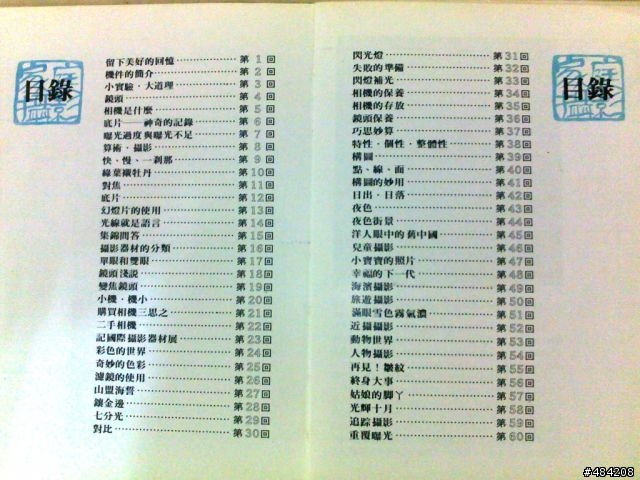 目錄
留下美好的回憶 第 1 回
機件的簡介 第 2 回
小實驗‧大道理 第 3 回
鏡頭 第 4 回
相機是什麼 第 5 回
底片──神奇的記錄 第 6 回
曝光過度與曝光不足 第 7 回
算術‧攝影 第 8 回
快、慢、一剎那 第 9 回
綠葉襯牡丹 第10回
對焦 第11回
底片 第12回
幻燈片的使用 第13回
光線就是語言 第14回
集錦問答 第15回
攝影器材的分類 第16回
單眼和雙眼 第17回
鏡頭淺說 第18回
變焦鏡頭 第19回
小機‧機小 第20回
購買相機三思之 第21回
二手相機 第22回
記國際攝影器材展 第23回
彩色的世界 第24回
奇妙的色彩 第25回
濾鏡的使用 第26回
山盟海誓 第27回
鑲金邊 第28回
七分光 第29回
對比 第30回
閃光燈 第31回
失敗的準備 第32回
閃燈補光 第33回
相機的保養 第34回
相機的存放 第35回
鏡頭保養 第36回
巧思妙算 第37回
特性‧個性‧整體性 第38回
構圖 第39回
點、線、面 第40回
構圖的妙用 第41回
日出‧日落 第42回
夜色 第43回
夜色街景 第44回
洋人眼中的舊中國 第45回
兒童攝影 第46回
小寶寶的照片 第47回
幸福的下一代 第48回
海濱攝影 第49回
旅遊攝影 第50回
滿眼雪色霧氣濃 第51回
近攝攝影 第52回
動物世界 第53回
人物攝影 第54回
再見!皺紋 第55回
終身大事 第56回
姑娘的脚丫 第57回
光輝十月 第58回
追踪攝影 第59回
重覆曝光 第60回
目錄
#484208